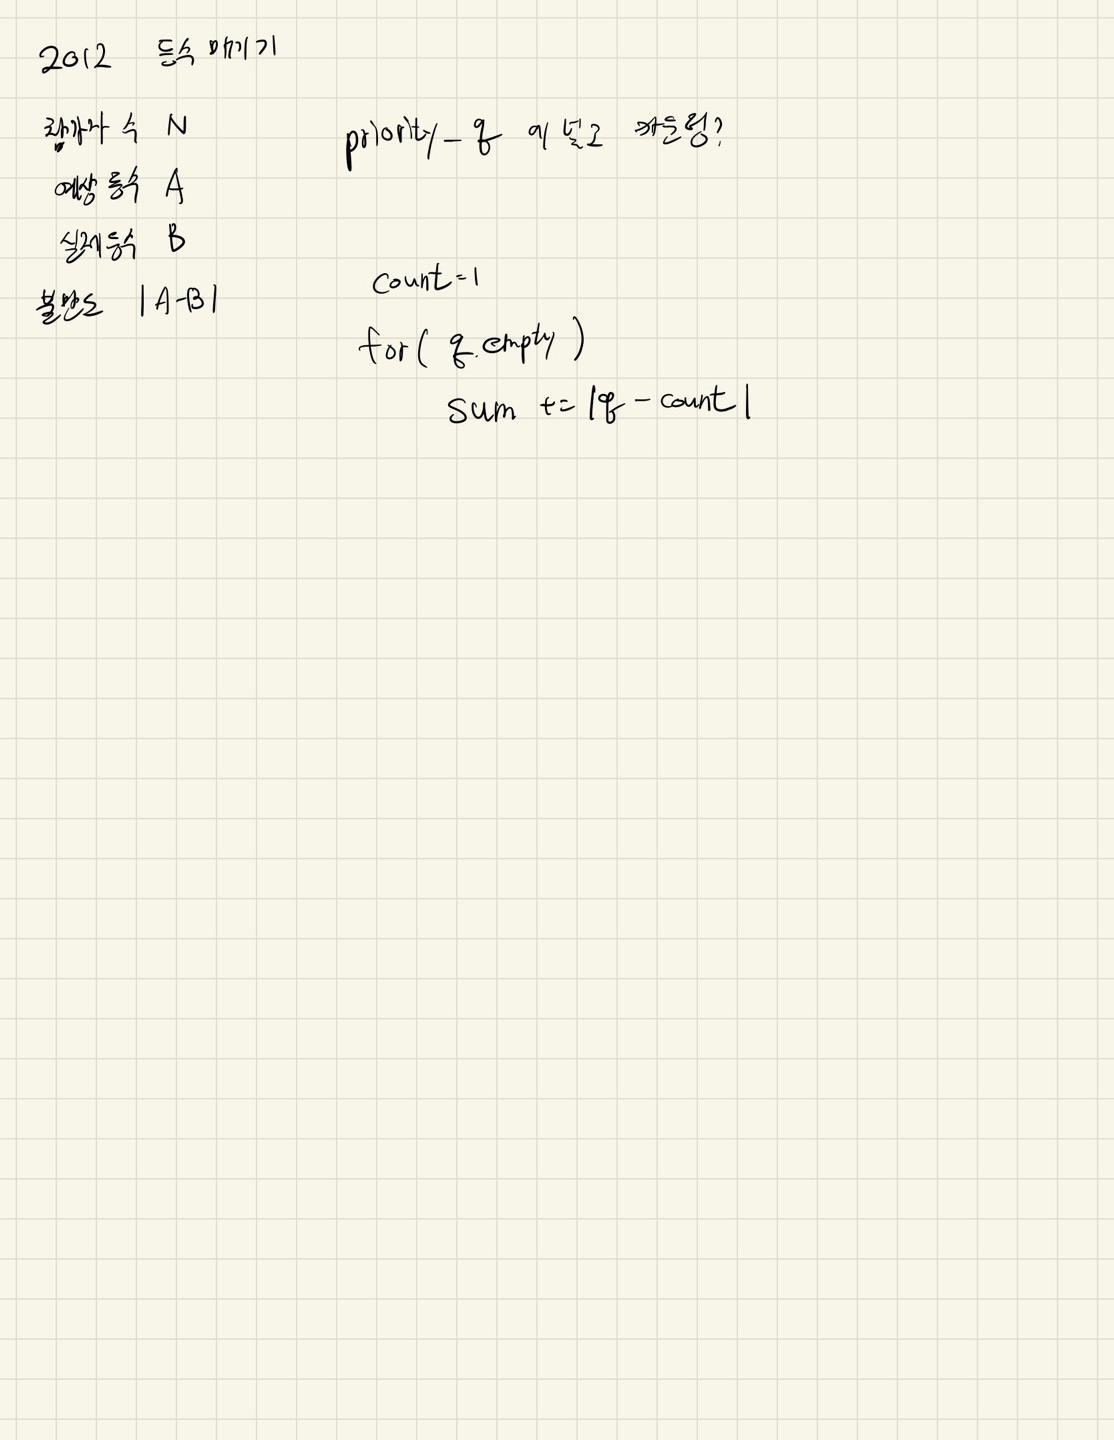 2012 등수 매기기
참가자 수 N
예상 등수 A
실제 등수 B
불만도 |A-B|
priority_q 에 넣고 카운팅?
count=1
for( q.empty )
sum += |q - count|